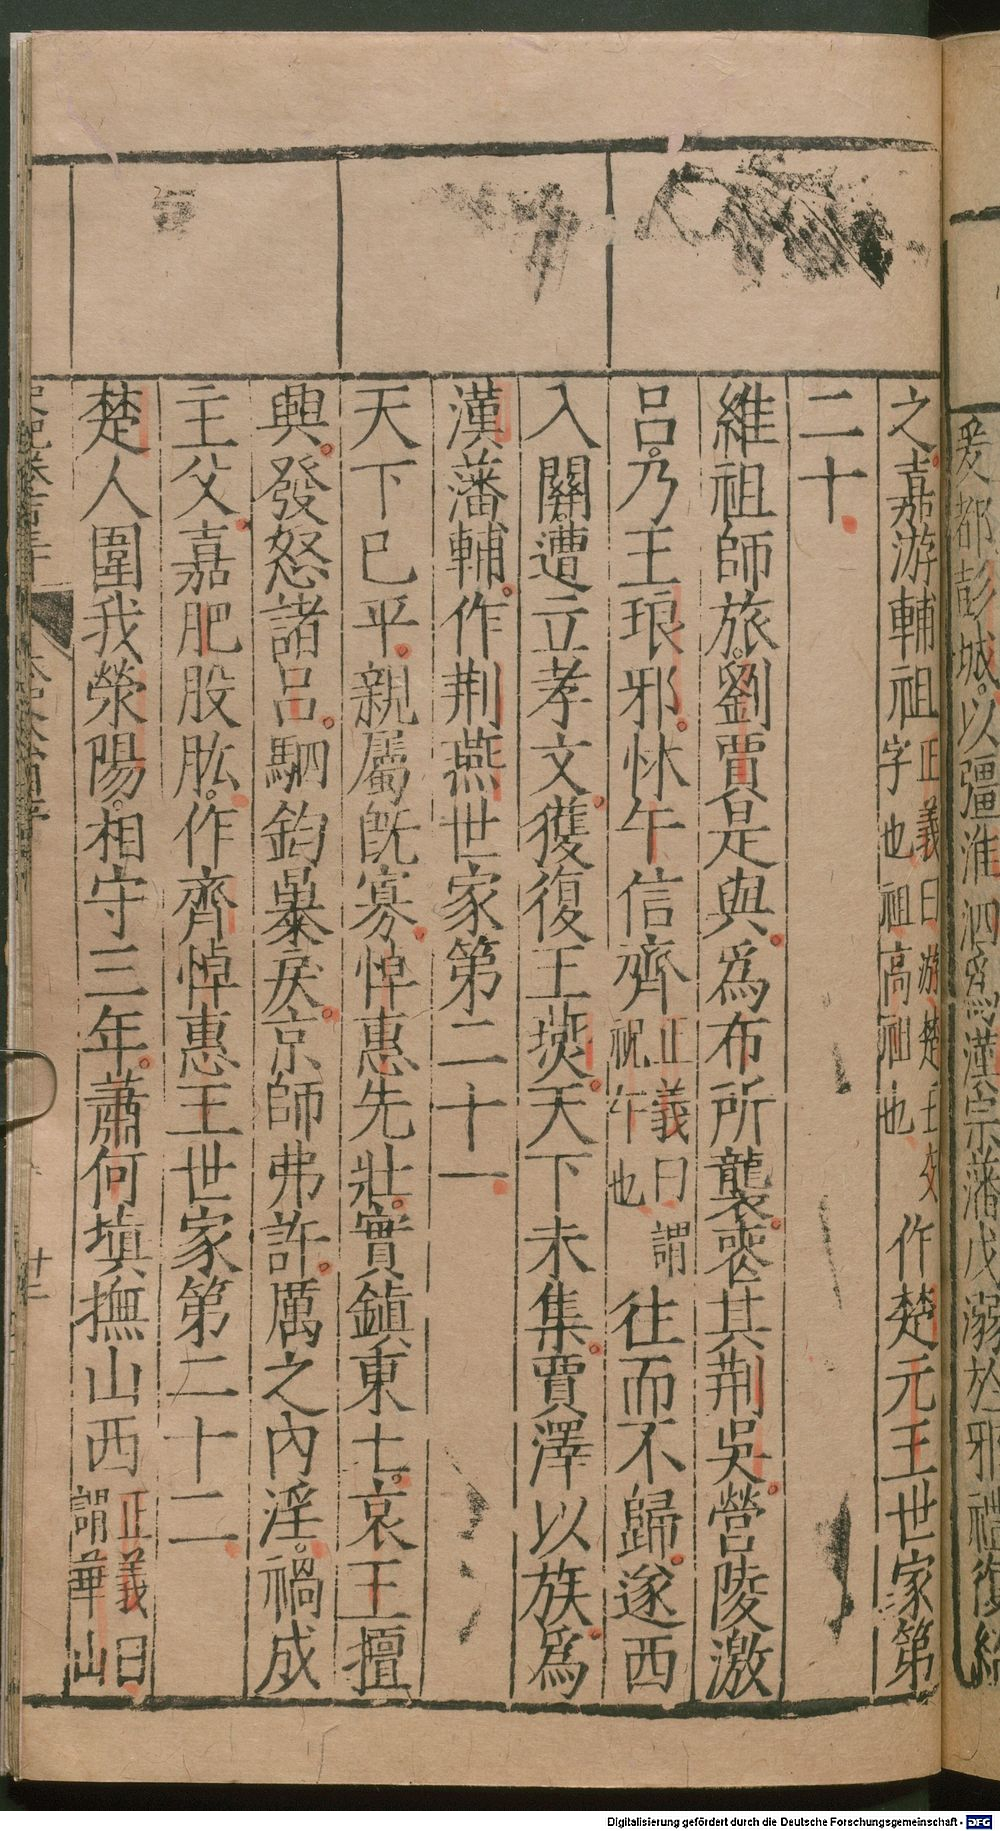 爰都彭城以彊淮泗爲漢宗藩戊溺於邪禮復紹
之嘉游輔祖正義曰游楚王交字也祖高祖也作楚元王世家第
二十
維祖師旅劉賈是與爲布所襲喪其荆吳營陵激
呂乃王琅邪怵午信齊正義曰謂祝午也往而不歸遂西
入關遭立孝文獲復王燕天下未集賈澤以族爲
漢藩輔作荆燕世家第二十一
天下已平親屬既寡悼惠先壯實鎮東土哀王擅
興發怒諸呂駟鈞暴戾京師弗許厲之內淫禍成
主父嘉肥股肱作齊悼惠王世家第二十二
楚人圍我滎陽相守三年蕭何填撫山西正義曰謂華山
十二
Digitalisierung gefördert durch die Deutsche Forschungsgemeinschaft - DFG